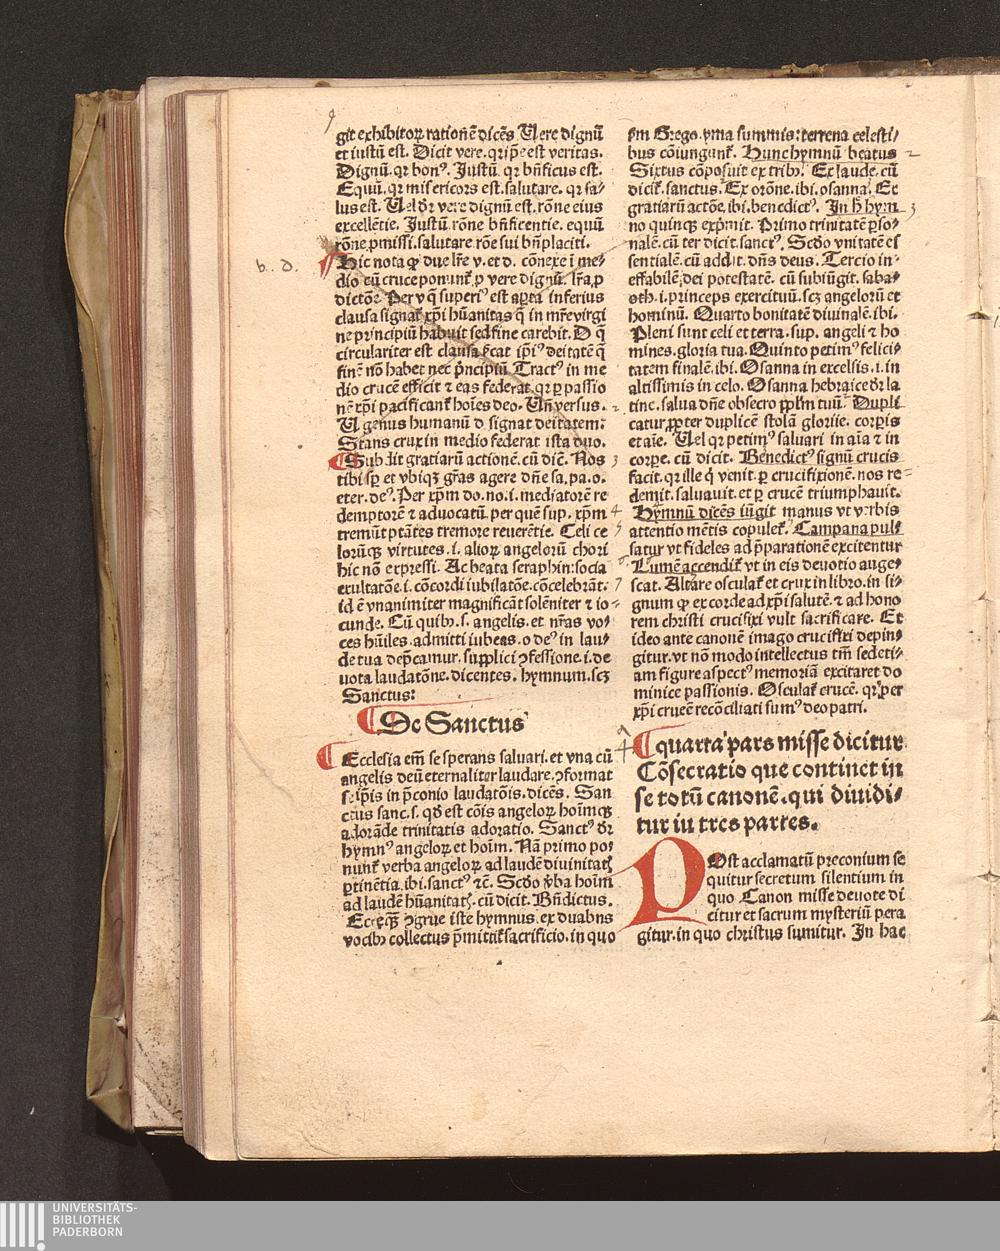 git exhibitoꝝ rationē dicēs. Uere dignū
et iustū est. Dicit vere. qꝛ ip̄e est veritas.
Dignū. qꝛ bonꝰ. Justū. qꝛ bn̄ficus est.
Equū. qꝛ misericors est. salutare. qꝛ sa⸗
lus est. Uel dꝛ vere dignū est. rōne eius
excellētie. Justū. rōne bn̄ficentie. equū
rōne ꝓmissi. salutare. rōe sui bn̄placiti.
b. d.
Hic nota ꝙ due lr̄e v. et d. cōnexe ī me⸗
dio cū cruce ponunt᷑ ꝓ vere dignū. lr̄a ꝓ
dictōe. Per v q̄ superiꝰ est aꝑta inferius
clausa signat᷑ xp̄i hūanitas q̄ in mr̄e virgi
ne principiū habuit sed fine carebit. D q̄
circulariter est clausa sc̄at ip̄iꝰ deitatē q̄
finē nō habet nec p̄ncipiū Tractꝰ in me
dio crucē efficit ⁊ eas federat. qꝛ ꝑ passio
nē xp̄i pacificant᷑ hoīes deo. Un̄ versus.
U genus humanū d signat deitatem:
Stans crux in medio federat ista duo.
Subdit gratiarū actionē. cū dic̄. Nos
tibi sꝑ et vbiqꝫ gr̄as agere dn̄e sa. pa. o.
eter. deꝰ. Per xp̄m do. no. i. mediatorē re
demptorē ⁊ aduocatū. per quē sup. xp̄m
tremūt ptātes tremore reuerētie. Celi ce
lorūqꝫ virtutes. i. alioꝝ angelorū chori
hic nō expressi. Ac beata seraphin: socia
exultatōe. i. cōcordi iubilatōe. cōcelebrāt.
id ē vnanimiter magnificāt solēniter ⁊ io⸗
cunde. Cū quibꝰ. s. angelis. et nr̄as vo⸗
ces hūiles. admitti iubeas. o deꝰ in lau⸗
de tua dep̄camur. supplici ꝯfessione. i. de
uota laudatōne. dicentes. hymnum. scꝫ
Sanctus:
De Sanctus
Ecclesia em̄ se sperans saluari. et vna cū
angelis deū eternaliter laudare. ꝯformat
se ip̄is in p̄conio laudatōis. dicēs. San
ctus sanc. s. qđ est cōis angeloꝝ hoīmqꝫ
adorāde trinitatis adoratio. Sanctꝰ dꝛ
hymnꝰ angeloꝝ et hoīm. Nā primo po⸗
nunt᷑ verba angeloꝝ ad laudē diuinitatꝭ
ꝑtinētia. ibi. sanctꝰ ⁊c̄. Scd̄o v̄ba hoīm
ad laudē hūanitatꝭ. cū dicit. Bn̄dictus.
ꝯgrue iste hymnus. ex duabus
vocibꝰ collectus p̄mittit᷑ sacrificio. in quo
sm̄ Grego. yma summis: terrena celesti⸗
bus cōiungunt᷑. Hunc hymnū beatus
Sixtus cōposuit ex tribꝰ. Ex laude. cū
dicit᷑. sanctus. Ex orōne. ibi. osanna. Et
gratiarū actōe. ibi. benedictꝰ. In h̄ hym
no quinqꝫ exp̄mit. Primo trinitatē ꝑso⸗
nalē. cū ter dicit. sanctꝰ. Scd̄o vnitatē es
sentialē. cū addit. dn̄s deus. Tercio in⸗
effabilē dei potestatē. cū subiūgit. saba⸗
oth. i. princeps exercituū. scꝫ angelorū et
hominū. Quarto bonitatē diuinalē. ibi.
Pleni sunt celi et terra. sup. angeli ⁊ ho
mines. gloria tua. Quinto petimꝰ felici⸗
tatem finalē. ibi. Osanna in excelsis. i. in
altissimis in celo. Osanna hebraice dꝛ la
tine. salua dn̄e obsecro pplm̄ tuū. Dupli
catur. ꝓpter duplicē stolā glorie. corꝑis
et aīe. Uel qꝛ petimꝰ saluari in aīa ⁊ in
corꝑe. cū dicit. Benedictꝰ signū crucis
facit. qꝛ ille q̇ venit. ꝑ crucifixionē. nos re⸗
demit. saluauit. et ꝑ crucē triumphauit.
Hymnū dicēs iūgit manus vt verbis
attentio mētis copulet᷑. Campana pul⸗
satur vt fideles ad p̄parationē excitentur
Lumē accendit᷑ vt in eis deuotio auge⸗
scat. Altare osculat᷑ et crux in libro. in si⸗
gnum ꝙ ex corde ad xp̄i salutē. ⁊ ad hono
rem christi crucifixi vult sacrificare. Et
ideo ante canonē imago crucifixi depin⸗
gitur. vt nō modo intellectus tm̄ sed eti⸗
am figure aspectꝰ memoriā excitaret do
minice passionis. Osculat᷑ crucē. qꝛ per
xp̄i crucē recōciliati sumꝰ deo patri.
4
quarta pars misse dicitur
Cōsecratio que continet in
se totū canonē. qui diuidi⸗
tur iu tres partes.
POst acclamatū preconium se
quitur secretum silentium in
quo Canon misse deuote di
citur et sacrum mysteriū pera
gitur. in quo christus sumitur. In hac
UNIVERSITÄTS-
BIBLIOTHEK
PADERBORN